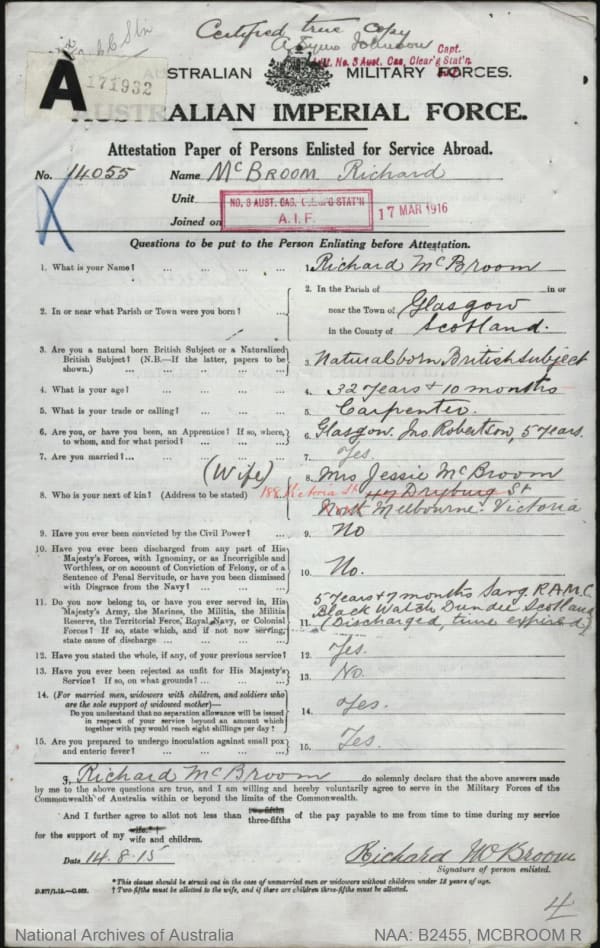 Certified true copy
Johnson Capt.
No. 3 Aust. Cas. Clear'g Stat'n
A 171932
AUSTRALIAN MILITARY FORCES.
AUSTRALIAN IMPERIAL FORCE.
Attestation Paper of Persons Enlisted for Service Abroad.
No. 14055 Name McBROOM Richard
Unit
NO. 3 AUST. CAS. CLEAR'G STAT'N
A.I.F.
17 MAR 1916
Joined on
Questions to be put to the Person Enlisting before Attestation.
1. What is your Name? ... ... ... ... 1. Richard McBroom
2. In or near what Parish or Town were you born? ... 2. In the Parish of in or
near the Town of Glasgow
in the County of Scotland.
3. Are you a natural born British Subject or a Naturalized
British Subject? (N.B.—If the latter, papers to be
shown.) ... ... ... ... 3. Natural born British subject
4. What is your age? ... ... ... ... 4. 32 years + 10 months
5. What is your trade or calling? ... ... ... 5. Carpenter.
6. Are you, or have you been, an Apprentice? If so, where,
to whom, and for what period? ... ... ... 6. Glasgow. Jno. Robertson, 5 years.
7. Are you married? ... ... ... ... 7. Yes.
(Wife)
8. Who is your next of kin? (Address to be stated) 8. Mrs Jessie McBroom
188 Victoria St 47 Dryburg St
North Melbourne. Victoria
9. Have you ever been convicted by the Civil Power? ... 9. No
10. Have you ever been discharged from any part of His
Majesty's Forces, with Ignominy, or as Incorrigible and
Worthless, or on account of Conviction of Felony, or of a
Sentence of Penal Servitude, or have you been dismissed
with Disgrace from the Navy? ... ... ... 10. No.
11. Do you now belong to, or have you ever served in, His
Majesty's Army, the Marines, the Militia, the Militia
Reserve, the Territorial Force, Royal Navy, or Colonial
Forces? If so, state which, and if not now serving,
state cause of discharge ... ... ... 11. 5 years + 7 months Sarg. R.A.M.C.
Black Watch Dundee Scotland
(Discharged, time expired)
12. Have you stated the whole, if any, of your previous service? 12. Yes.
13. Have you ever been rejected as unfit for His Majesty's
Service? If so, on what grounds? ... ... ... 13. No.
14. (For married men, widowers with children, and soldiers who
are the sole support of widowed mother)—
Do you understand that no separation allowance will be issued
in respect of your service beyond an amount which
together with pay would reach eight shillings per day? 14. Yes.
15. Are you prepared to undergo inoculation against small pox
and enteric fever? ... ... ... ... 15. Yes.
I, Richard McBroom do solemnly declare that the above answers made
by me to the above questions are true, and I am willing and hereby voluntarily agree to serve in the Military Forces of the
Commonwealth of Australia within or beyond the limits of the Commonwealth.
And I further agree to allot not less than two-fifths three-fifths of the pay payable to me from time to time during my service
for the support of my wife.*† wife and children.
Date 14.8.15 Richard McBroom
Signature of person enlisted.
*This clause should be struck out in the case of unmarried men or widowers without children under 18 years of age.
† Two-fifths must be allotted to the wife, and if there are children three-fifths must be allotted.
4
National Archives of Australia NAA: B2455, MCBROOM R